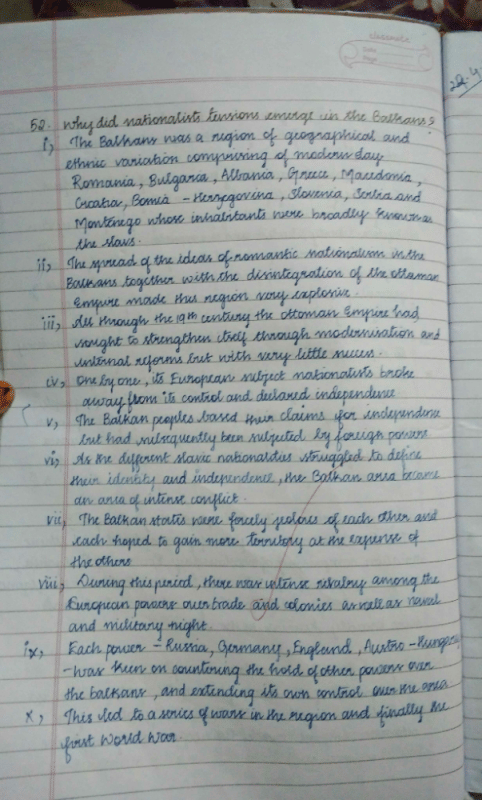 classmate
Date
Page
52. Why did nationalist tensions emerge in the Balkans?
i, The Balkans was a region of geographical and
ethnic variation comprising of modern day
Romania, Bulgaria, Albania, Greece, Macedonia,
Croatia, Bosnia - Herzegovina, Slovenia, Serbia and
Montenego whose inhabitants were broadly known as
the slavs.
ii, The spread of the ideas of romantic nationalism in the
Balkans together with the disintegration of the ottoman
Empire made this region very explosive.
iii, All through the 19th century the ottoman Empire had
sought to strengthen itself through modernisation and
internal reforms but with very little success.
iv, One by one, its European subject nationalists broke
away from its control and declared independence
v, The Balkan peoples based their claims for independence
but had subsequently been subjected by foreign powers
vi, As the different slavic nationalities struggled to define
their identity and independence, the Balkan area became
an area of intense conflict.
vii, The Balkan states were forcely jealores of each other and
each hoped to gain more territory at the expense of
the others
viii, During this period, there was intense rivalry among the
European powers over trade and colonies as well as navel
and military might.
ix, Each power - Russia, Germany, England, Austro - Hungary
- was keen on countering the hold of other powers over
the balkans, and extending its own control over the area
x, This led to a series of wars in the region and finally the
first World War.